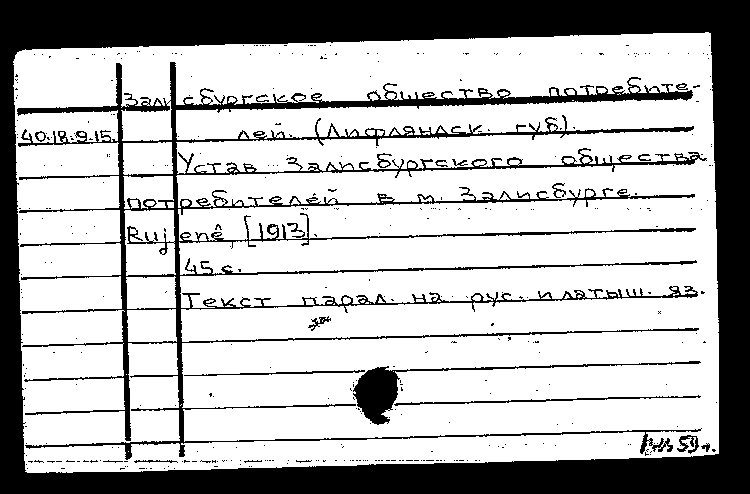 Залисбургское общество потребите-
40.18.9.15. лей. (Лифляндск. губ).
Устав Залисбургского общества
потребителей в м. Залисбурге.
Rujenê, [1913].
45 с.
Текст парал. на рус. и латыш. яз.
59 г.